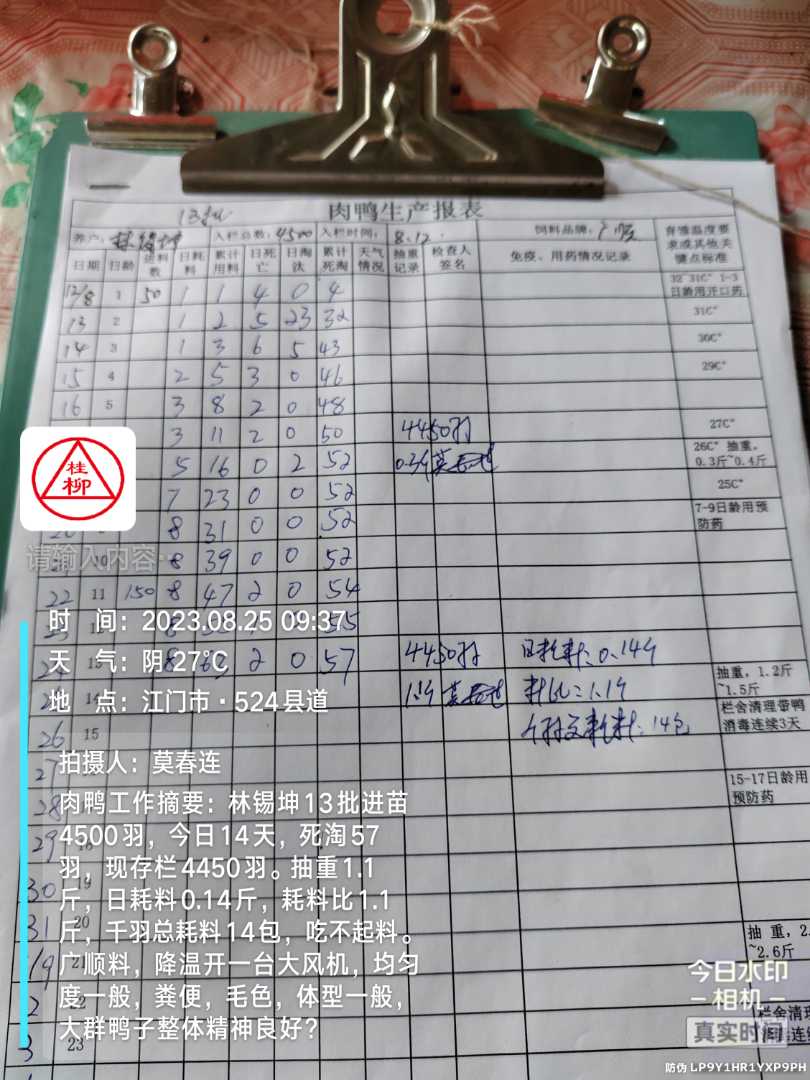 13批
肉鸭生产报表
养户: 林锡坤 入栏总数: 4500 入栏时间: 8.12 饲料品牌: 广顺 育雏温度要求或其他关键点标准
日期 日龄 进料数 日耗料 累计用料 日死亡 日淘汰 累计死淘 天气情况 抽重记录 检查人签名 免疫、用药情况记录
12/8 1 50 1 1 4 0 4 32-31C° 1-3日龄用开口药
13 2 1 2 5 23 32 31C°
14 3 1 3 6 5 43 30C°
15 4 2 5 3 0 46 29C°
16 5 3 8 2 0 48
3 11 2 0 50 4450羽 27C°
5 16 0 2 52 莫春连 26C° 抽重,0.3斤~0.4斤
7 23 0 0 52 25C°
8 31 0 0 52 7-9日龄用预防药
10 8 39 0 0 52
22 11 150 8 47 2 0 54
23 8 0 55
24 8 63 2 0 57 4450羽 日耗料:0.14斤
14 1.1斤 莫春连 料比:1.1斤 抽重,1.2斤~1.5斤
26 15 千羽总耗料:14包 栏舍清理带鸭消毒连续3天
27
28 15-17日龄用预防药
29
30 19
31 20 抽重,2.
~2.6斤
1/9 21
2 22 栏舍清理
3 23 连续
桂柳
请输入内容
时 间:2023.08.25 09:37
天 气:阴 27℃
地 点:江门市·524县道
拍摄人:莫春连
肉鸭工作摘要:林锡坤13批进苗
4500羽,今日14天,死淘57
羽,现存栏4450羽。抽重1.1
斤,日耗料0.14斤,耗料比1.1
斤,千羽总耗料14包,吃不起料。
广顺料,降温开一台大风机,均匀
度一般,粪便,毛色,体型一般,
大群鸭子整体精神良好?
今日水印
-相机-
真实时间
防伪 LP9Y1HR1YXP9PH